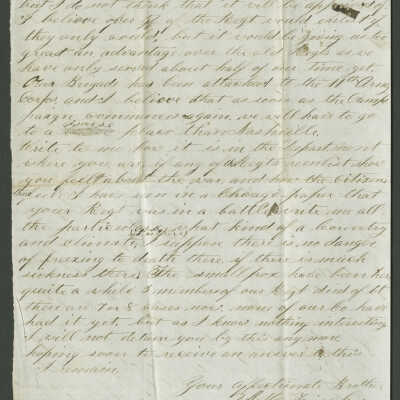 but I do not think that it will be approved of
I believe over ½ of the Regt would enlist if
they only would, but it would be giving us too
great an advantage over the old Regts as we
have only served about half of our time yet.
Our Brigade has been attached to the 11th Army
Corps, and I believe that as soon as the Camp
paign commences again, we will have to go
to a place than Nashville.
Write to me how it is in the department
where you are, if any of Regt reenlist how
you feel about the war, and how the citizens
feel. I have seen in a Chicago paper that
your Regt was in a battle, write me all
the particulars, what kind of a country
and climate, I suppose there is no danger
of freezing to death there, if there is much
sickness there. The small pox have been here
quite a while 3 members of our Regt died of it
there are 7 or 8 cases now, none of our Co have
had it yet, but as I know nothing interesting
I will not detain you by this any more
hoping soon to receive an answer to this
I remain
Your affectionate Brother